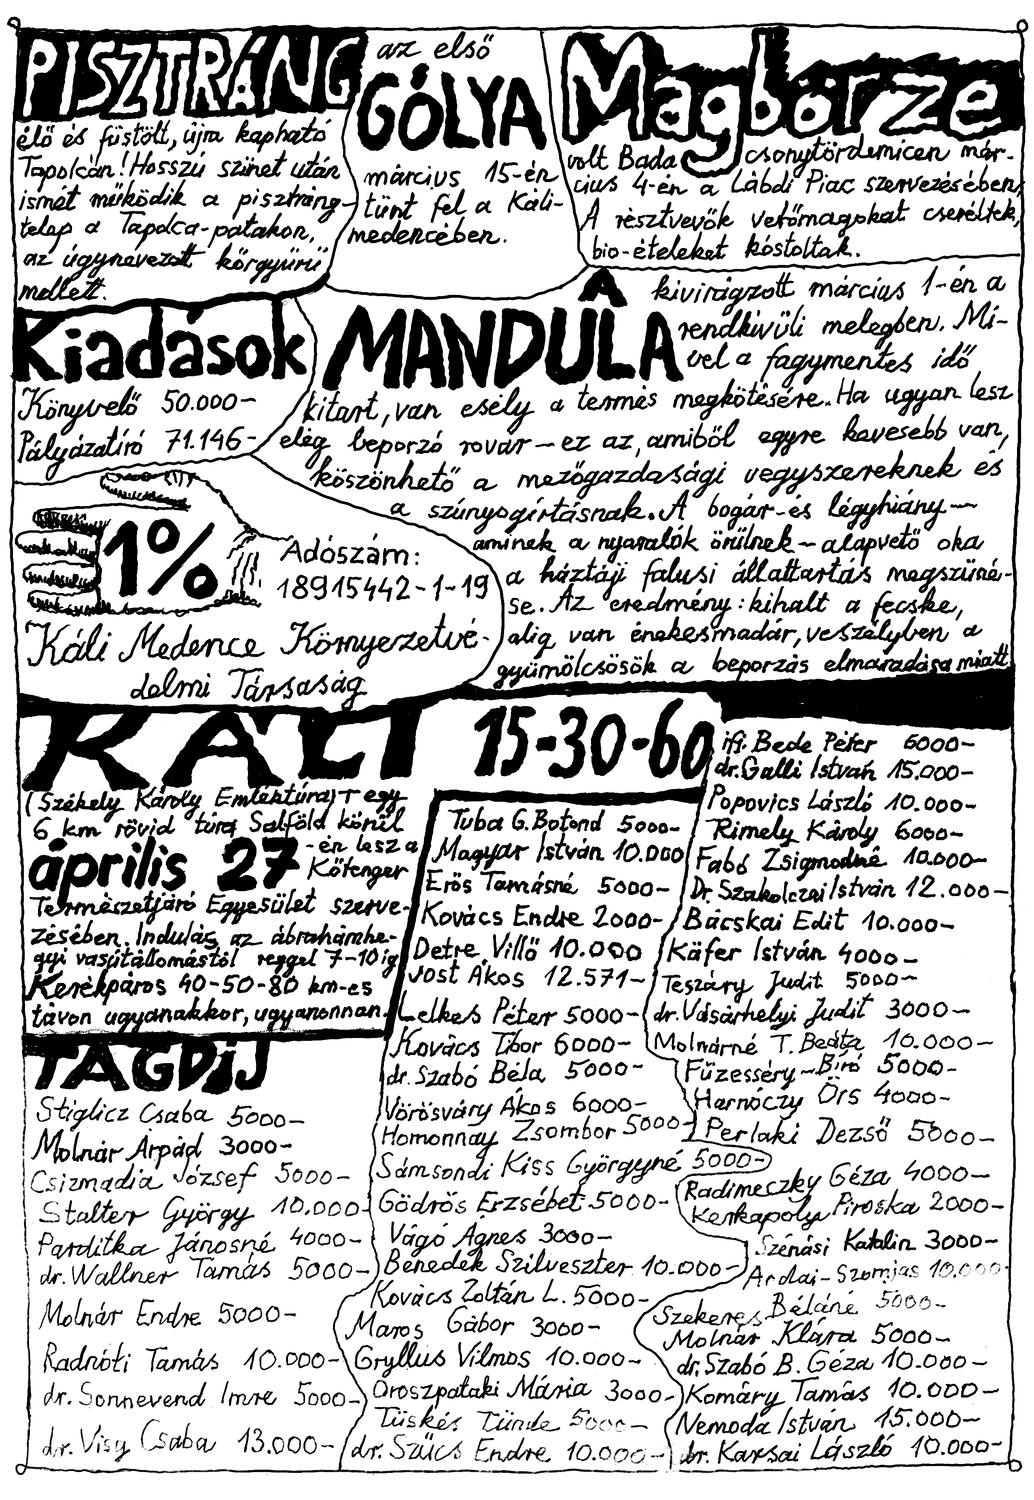 PISZTRÁNG
élő és füstölt, újra kapható
Tapolcán! Hosszú szünet után
ismét működik a pisztráng-
telep a Tapolca-patakon,
az úgynevezett körgyűrű
mellett.
az első
GÓLYA
március 15-én
tűnt fel a Káli-
medencében.
Magbörze
volt Badacsonytördemicen már-
cius 4-én a Lábdi Piac szervezésében.
A résztvevők vetőmagokat cseréltek,
bio-ételeket kóstoltak.
Kiadások
Könyvelő 50.000-
Pályázatíró 71.146-
A MANDULA
kivirágzott március 1-én a
rendkívüli melegben. Mi-
vel a fagymentes idő
kitart, van esély a termés megkötésére. Ha ugyan lesz
elég beporzó rovar - ez az, amiből egyre kevesebb van,
köszönhető a mezőgazdasági vegyszereknek és
a szúnyogírtásnak. A bogár-és légyhiány -
aminek a nyaralók örülnek - alapvető oka
a háztáji falusi állattartás megszűné-
se. Az eredmény: kihalt a fecske,
alig van énekesmadár, veszélyben a
gyümölcsösök a beporzás elmaradása miatt.
1%
Adószám:
18915442-1-19
Káli Medence Környezetvé-
delmi Társaság
KÁLI 15-30-60
(Székely Károly Emléktúra) - egy
6 km rövid túra Salföld körül
április 27-én lesz a
Kőtenger
Természetjáró Egyesület szerve-
zésében. Indulás az ábrahámhe-
gyi vasútállomástól reggel 7-10 ig
Kerékpáros 40-50-80 km-es
távon ugyanakkor, ugyanonnan.
TAGDÍJ
Stiglicz Csaba 5000-
Molnár Árpád 3000-
Csizmadia József 5000-
Stalter György 10.000-
Parditka Jánosné 4000-
dr. Wallner Tamás 5000-
Molnár Endre 5000-
Radnóti Tamás 10.000-
dr. Sonnevend Imre 5000-
dr. Visy Csaba 13.000-
Tuba G. Botond 5000-
Magyar István 10.000
Erős Tamásné 5000-
Kovács Endre 2000-
Detre Villő 10.000
Jost Ákos 12.571-
Lelkes Péter 5000-
Kovács Tibor 6000-
dr. Szabó Béla 5000-
Vörösváry Ákos 6000-
Homonnay Zsombor 5000-
Sámsondi Kiss Györgyné 5000-
Gödrös Erzsébet 5000-
Vágó Ágnes 3000-
Benedek Szilveszter 10.000-
Kovács Zoltán L. 5000-
Maros Gábor 3000-
Gryllus Vilmos 10.000-
Oroszpataki Mária 3000-
Tüskés Tünde 5000-
dr. Szűcs Endre 10.000-
ifj. Bede Péter 6000-
dr. Galli István 15.000-
Popovics László 10.000-
Rimely Károly 6000-
Fabó Zsigmodné 10.000-
Dr. Szakolczai István 12.000-
Bácskai Edit 10.000-
Käfer István 4000-
Teszáry Judit 5000-
dr. Vásárhelyi Judit 3000-
Molnárné T. Beáta 10.000-
Füzesséry-Bíró 5000-
Harnóczy Örs 4000-
Perlaki Dezső 5000-
Radimeczky Géza 4000-
Kerkapoly Piroska 2000-
Szénási Katalin 3000-
Ardai-Szomjas 10.000-
Szekeres Béláné 5000-
Molnár Klára 5000-
dr. Szabó B. Géza 10.000-
Komáry Tamás 10.000-
Nemoda István 15.000-
dr. Karsai László 10.000-